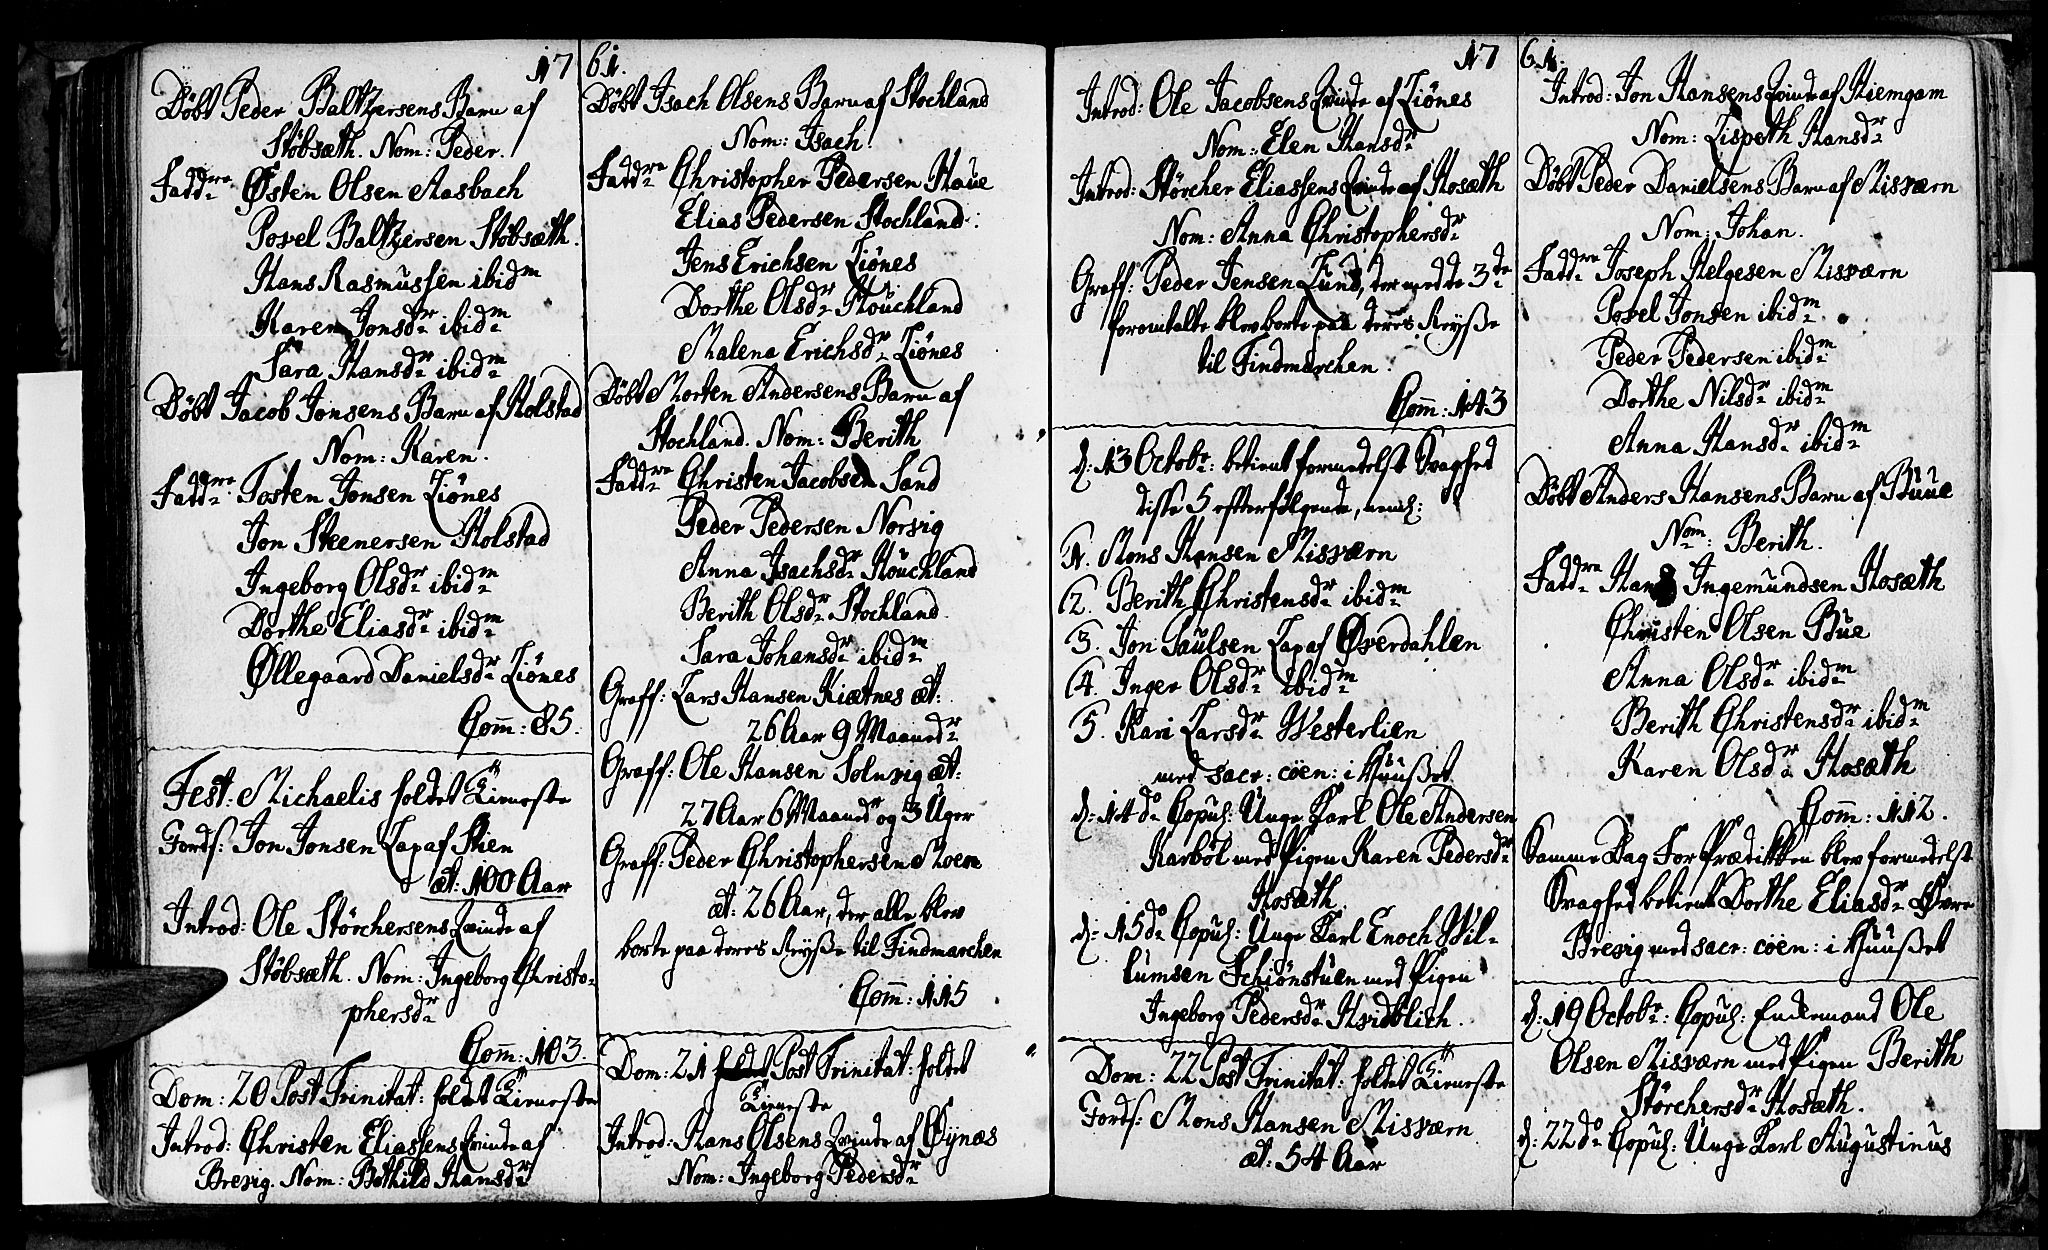 1761.
Döbt Peder Baltzersens Barn af
Stöbsæth. Nom: Peder.
Fadd:re Østen Olsen Aasbach
Povel Baltzersen Stöbsæth.
Hans Rasmussen ibid:m
Karen Jonsd:r ibid:m
Sara Hansd:r ibid:m
Döbt Jacob Jonsens Barn af Holstad
Nom: Karen.
Fadd:re Tosten Jonsen Liönes
Jon Steenersen Holstad
Ingeborg Olsd:r ibid:m
Dorthe Eliasd:r ibid:m
Øllegaard Danielsd:r Liönes
Com̄: 85.
Fest: Michaelis holdet Tieneste
Jords: Jon Jonsen Lap af Skien
æt: 100 Aar
Introd: Ole Störchersens Qvinde af
Stöbsæth. Nom: Ingeborg Christo-
phersd:r
Com̄: 103.
Dom: 20 Post Trinitat: holdt Tieneste
Introd: Christen Eliassens Qvinde af
Brevig. Nom: Bothild Hansd:r
Döbt Isach Olsens Barn af Stochland
Nom: Isach.
Fadd:re Christopher Pedersen Haue
Elias Pedersen Stochland.
Jens Erichsen Liönes
Dorthe Olsd:r Houchland
Malena Erichsd:r Liönes
Döbt Morten Andersens Barn af
Stochland. Nom: Berith
Fadd:re Christen Jacobsen Sand
Peder Pedersen Norvig
Anna Isachsd:r Houchland
Berith Olsd:r Stochland.
Sara Johansd:r ibid:m
Graff: Lars Hansen Kiætnes æt:
26 Aar 9 Maaned:r
Graff: Ole Hansen Solvvig æt:
27 Aar 6 Maaned:r og 3 Uger
Graff: Peder Christophersen Moen
æt: 26 Aar, der alle blev
borte paa deres Reyße til Findmarchen
Com̄: 115
Dom: 21 Post Trinitat: holdet
Tieneste
Introd: Hans Olsens Qvinde af Øynæs
Nom: Ingeborg Pedersd:r
1761.
Introd: Ole Jacobsens Qvinde af Liönes
Nom: Elen Hansd:r
Introd: Störcher Eliassens Qvinde af Hosæth
Nom: Anna Christophersd:r
Graff: Peder Jensen Lund, der med de 3de
foromtalte blev borte paa deres Reyße
til Findmarchen.
Com̄: 143
d: 13 Octob:r: betient formedelst Svaghed
disse 5 efterfølgende, neml:
1. Mons Hansen Misværn
2. Berith Christensd:r ibid:m
3. Jon Paulsen Lap af Øverdahlen
4. Inger Olsd:r ibid:m
5. Kari Larsd:r Westerlien
med sacr: cöen: i Huußet
d: 14 do Copul: Unge Karl Ole Andersen
Karböl med Pigen Karen Pedersd:r
Hosæth.
d: 15 do Copul: Unge Karl Enoch Wil-
lumsen Schiönstuen med Pigen
Ingeborg Pedersd:r Hvidblich.
Dom: 22 Post Trinitat: holdet Tieneste
Jords: Mons Hansen Misværn
æt: 54 Aar
Introd: Jon Hansens Qvinde af Hiemgam
Nom: Lispeth Hansd:r
Döbt Peder Danielsens Barn af Misværn
Nom: Johan.
Fadd:re Joseph Helgesen Misværn
Povel Jonsen ibid:m
Peder Pedersen ibid:m
Dorthe Nilsd:r ibid:m
Anna Hansd:r ibid:m
Döbt Anders Hansens Barn af Buue
Nom: Berith.
Fadd:re Hans Ingemundsen Hosæth
Christen Olsen Bue
Anna Olsd:r ibid:m
Berith Christensd:r ibid:m
Karen Olsd:r Hosæth
Com̄: 112.
Samme Dag For Prædikken blev formedelst
Svaghed betient Dorthe Eliasd:r Øvre
Brevig med sacr: cöen: i Huußet
d: 19 Octob:r: Copul: Enckemand Ole
Olsen Misværn med Pigen Berith
Störchersd:r Hosæth.
d: 22 do Copul: Unge Karl Augustinus